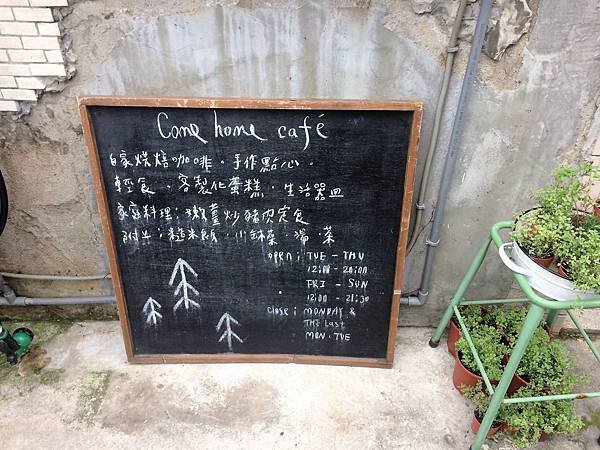 Come home café
自家烘焙咖啡．手作點心．
輕食．客製化蛋糕．生活器皿
家庭料理．嫩薑炒豬肉定食
附上；糙米飯．小缽菜．湯．茶
open ; TUE - THU
12:00 - 20:00
FRI - SUN
12:00 - 21:30
close ; MONDAY &
THE Last
MON. TUE